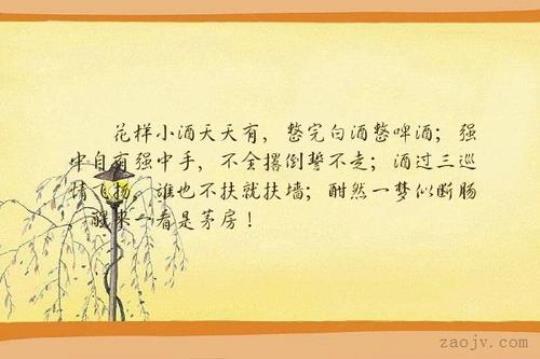 花样小酒天天有，整完白酒整啤酒；强
中自有强中手，不全撂倒誓不走；酒过三巡
情飞扬，谁也不扶就扶墙；酣然一梦似断肠
，醒来一看是茅房！
zaojv.com